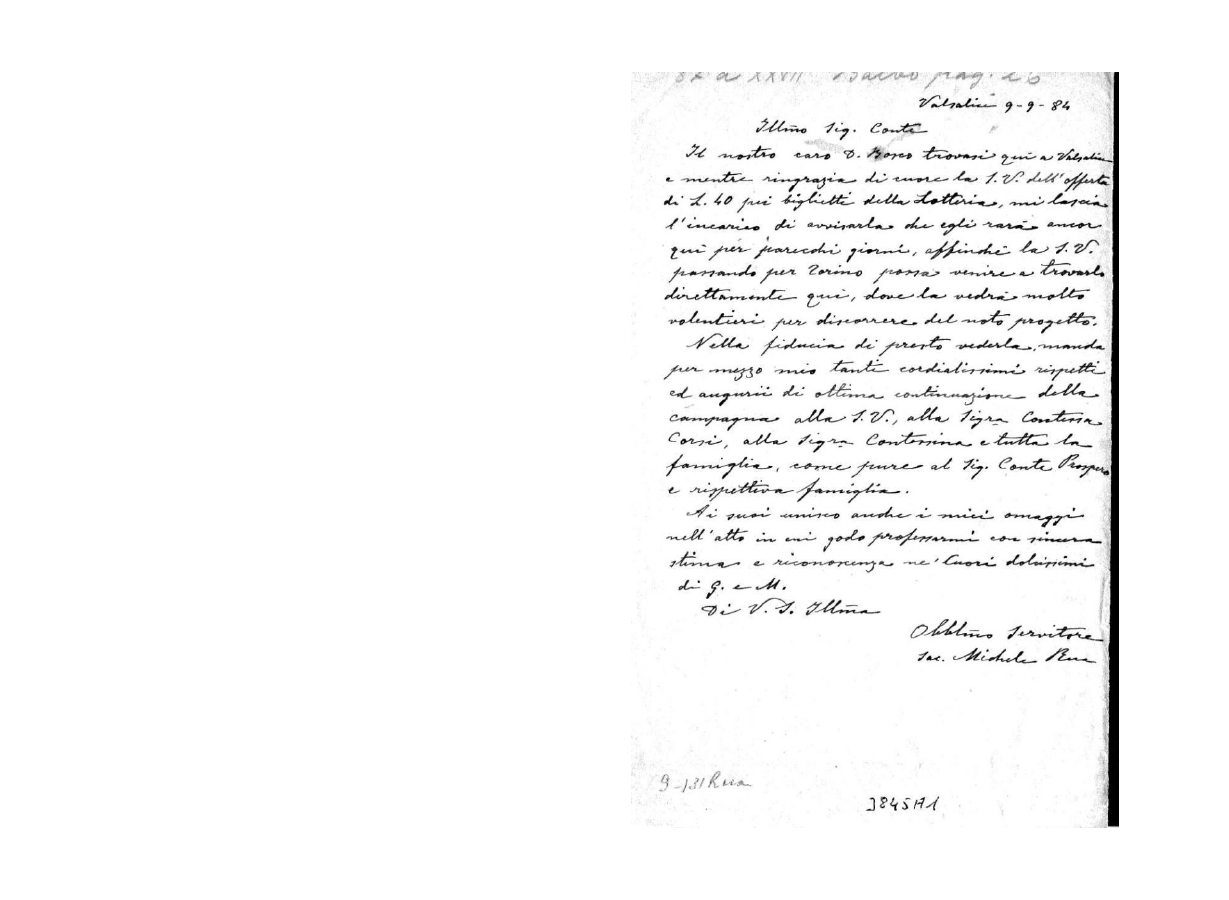 82 a XXVII Salvo pag. 26
Valsalice 9-9-84
Illm̃o Sig. Conte
Il nostro caro D. Bosco trovasi qui a Valsalice
e mentre ringrazia di cuore la S. V. dell'offerta
di L. 40 pei biglietti della Lotteria, mi lascia
l'incarico di avvisarla che egli sarà ancor
qui per parecchi giorni, affinchè la S. V.
passando per Torino possa venire a trovarlo
direttamente qui, dove la vedrà molto
volentieri per discorrere del noto progetto.
Nella fiducia di presto vederla, manda
per mezzo mio tanti cordialissimi rispetti
ed augurii di ottima continuazione della
campagna alla S. V., alla Sigra Contessa
Corsi, alla Sigra Contessina e tutta la
famiglia, come pure al Sig. Conte Prospero
e rispettiva famiglia.
Ai suoi unisco anche i miei omaggi
nell'atto in cui godo professarmi con sincera
stima e riconoscenza ne' Cuori dolcissimi
di G. e M.
Di V. S. Illm̃a
Obblm̃o Servitore
Sac. Michele Rua
9-131 Rua
3845A1